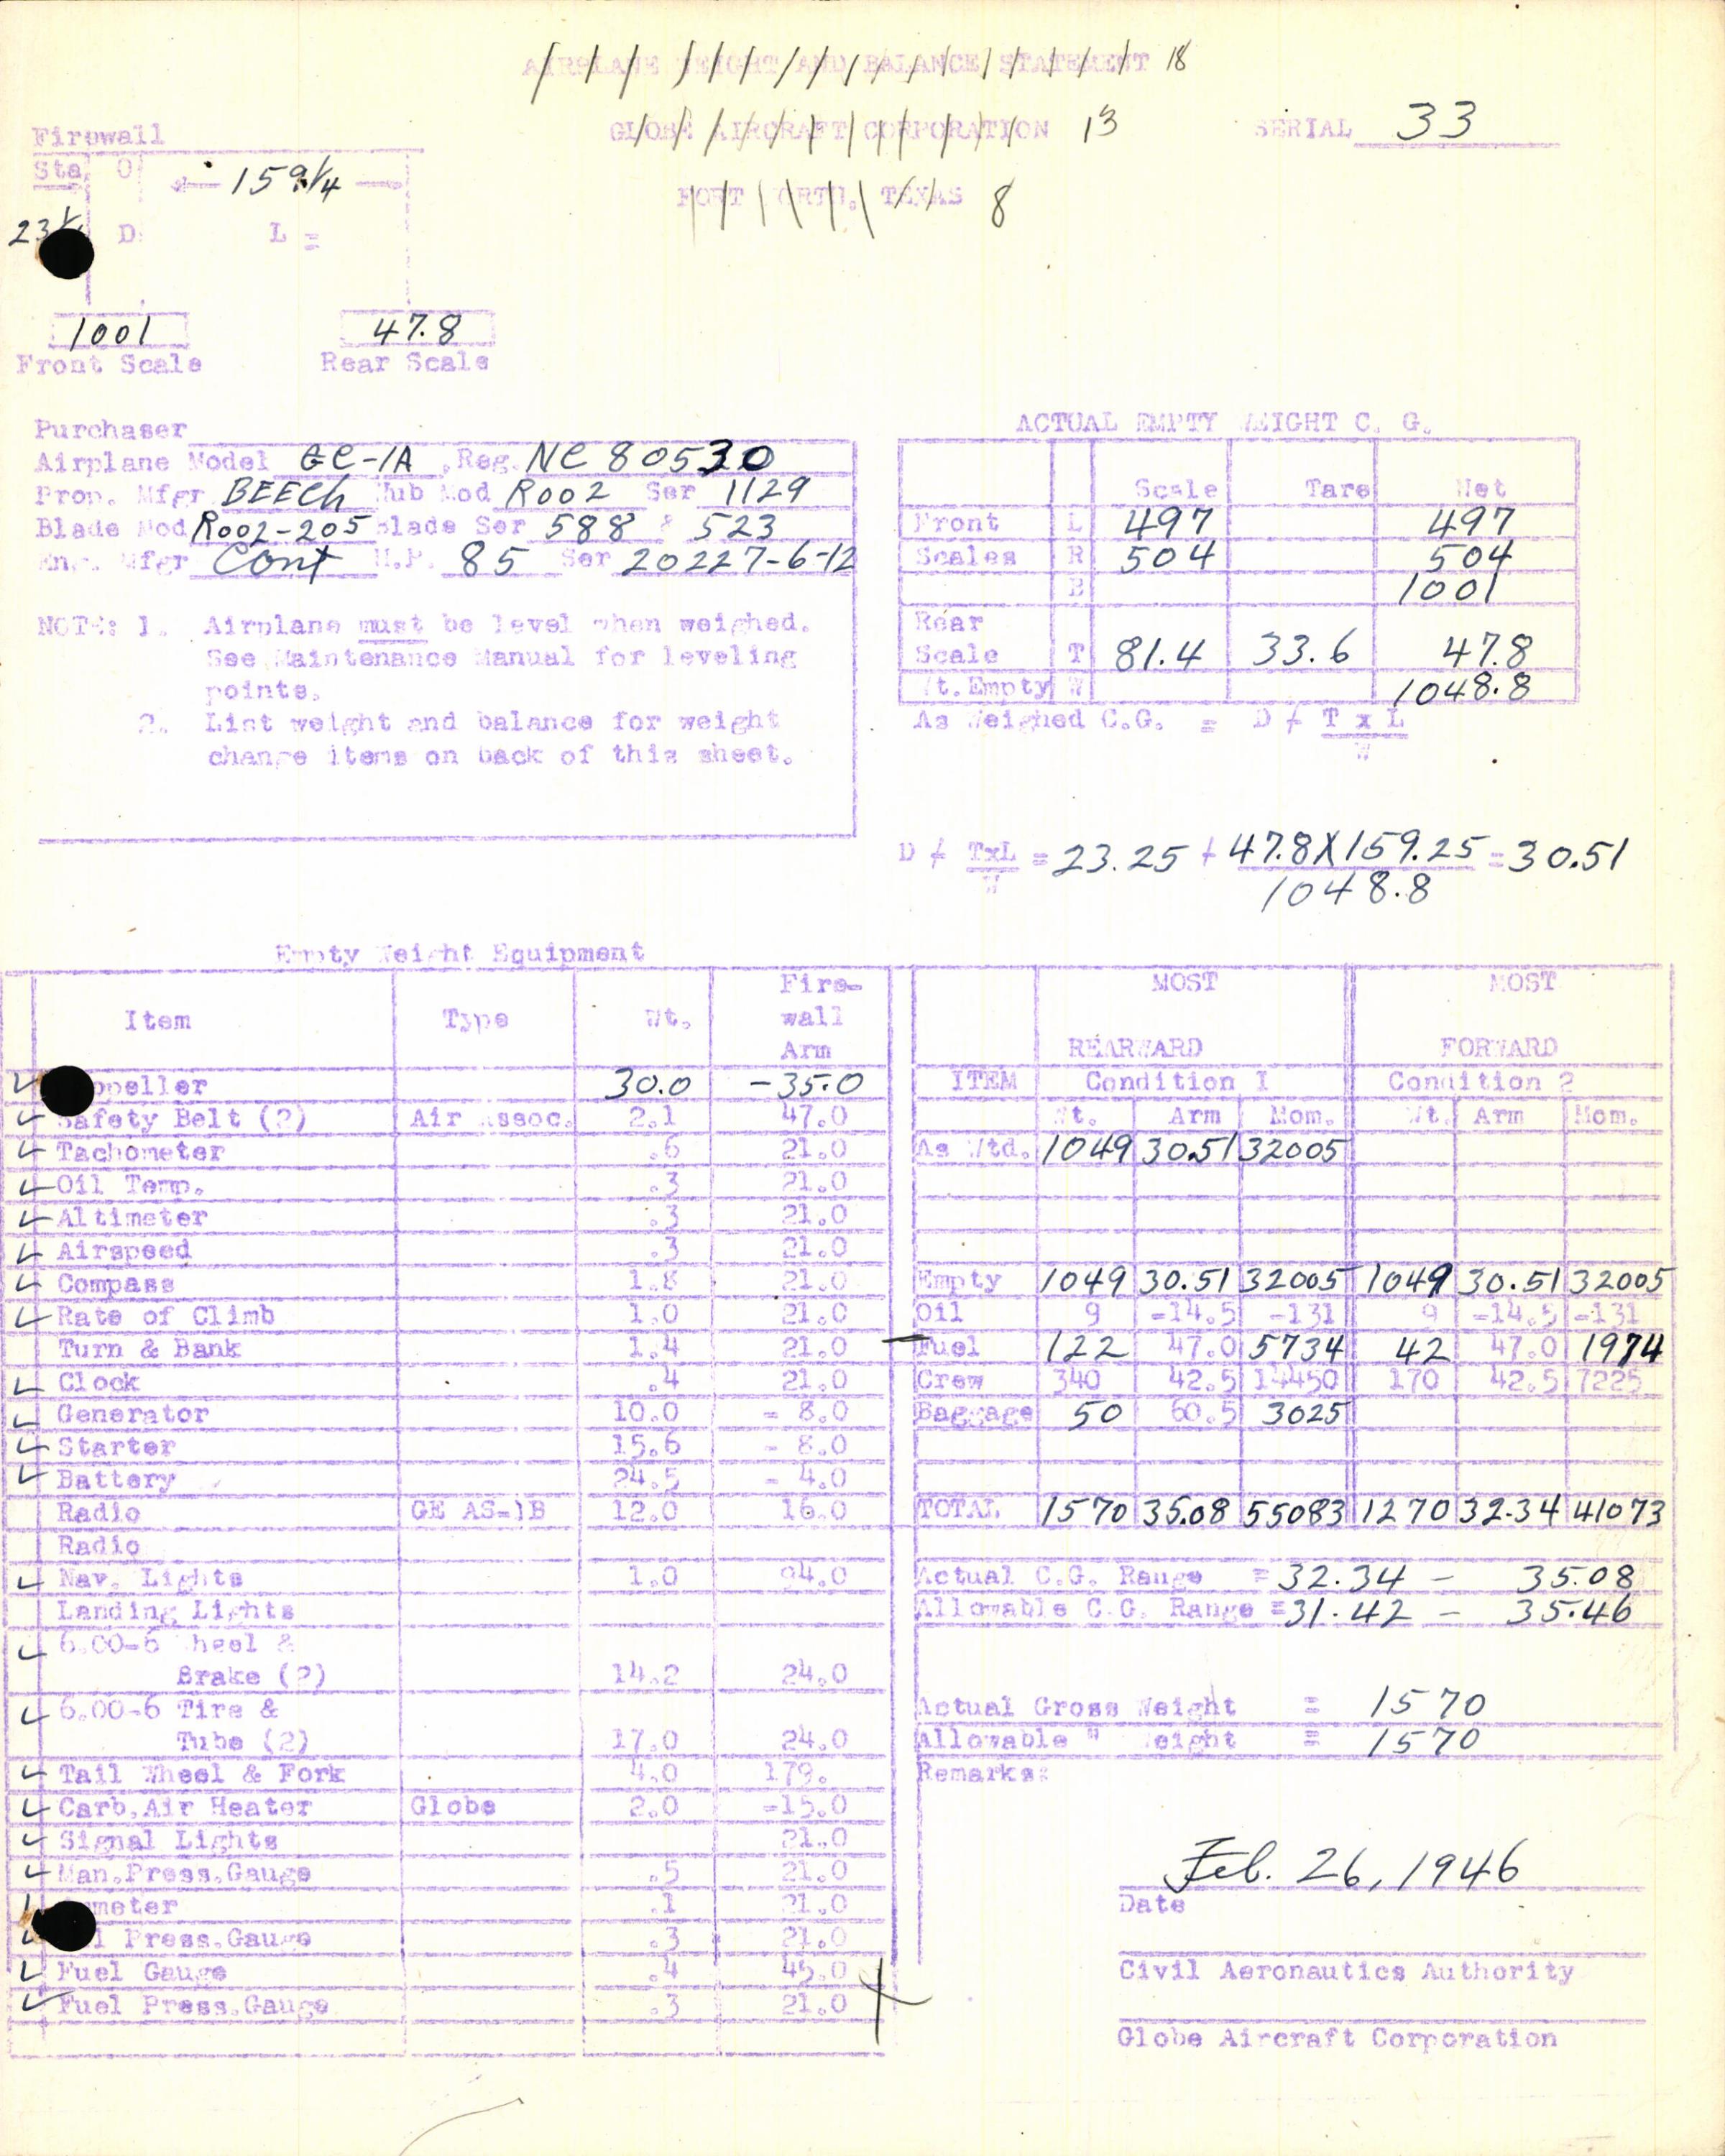 AIRPLANE WEIGHT AND BALANCE STATEMENT 18
GLOBE AIRCRAFT CORPORATION 13
SERIAL 33
FORT WORTH, TEXAS 8
Firewall
Sta 0
159 1/4
D
L =
1001
47.8
Front Scale
Rear Scale
Purchaser
Airplane Model GC-1A , Reg. NC 80530
Prop. Mfgr BEECH Hub Mod R002 Ser 1129
Blade Mod R002-205 Blade Ser 588 & 523
Eng. Mfgr Cont H.P. 85 Ser 20227-6-12
NOTE: 1. Airplane must be level when weighed.
See Maintenance Manual for leveling
points.
2. List weight and balance for weight
change items on back of this sheet.
ACTUAL EMPTY WEIGHT C. G.
Scale Tare Net
Front L 497 497
Scales R 504 504
1001
Rear
Scale T 81.4 33.6 47.8
Wt. Empty W 1048.8
As Weighed C.G. = D + T x L
W
D + TxL = 23.25 + 47.8X159.25 = 30.51
W 1048.8
Empty Weight Equipment
Item Type Wt. Fire-
wall
Arm
peller 30.0 -35.0
Safety Belt (2) Air Assoc. 2.1 47.0
Tachometer .6 21.0
Oil Temp. .3 21.0
Altimeter .3 21.0
Airspeed .3 21.0
Compass 1.8 21.0
Rate of Climb 1.0 21.0
Turn & Bank 1.4 21.0
Clock .4 21.0
Generator 10.0 - 8.0
Starter 15.6 - 8.0
Battery 24.5 - 4.0
Radio GE AS-1B 12.0 16.0
Radio
Nav. Lights 1.0 94.0
Landing Lights
6.00-6 Wheel &
Brake (2) 14.2 24.0
6.00-6 Tire &
Tube (2) 17.0 24.0
Tail Wheel & Fork 4.0 179.
Carb.Air Heater Globe 2.0 -15.0
Signal Lights 21.0
Man.Press.Gauge .5 21.0
meter .1 21.0
l Press.Gauge .3 21.0
Fuel Gauge .4 45.0
Fuel Press.Gauge .3 21.0
MOST MOST
REARWARD FORWARD
ITEM Condition 1 Condition 2
Wt. Arm Mom. Wt. Arm Mom.
As Wtd. 1049 30.51 32005
Empty 1049 30.51 32005 1049 30.51 32005
Oil 9 -14.5 -131 9 -14.5 -131
Fuel 122 47.0 5734 42 47.0 1974
Crew 340 42.5 14450 170 42.5 7225
Baggage 50 60.5 3025
TOTAL 1570 35.08 55083 1270 32.34 41073
Actual C.G. Range = 32.34 - 35.08
Allowable C.G. Range = 31.42 - 35.46
Actual Gross Weight = 1570
Allowable " Weight = 1570
Remarks:
Feb. 26, 1946
Date
Civil Aeronautics Authority
Globe Aircraft Corporation